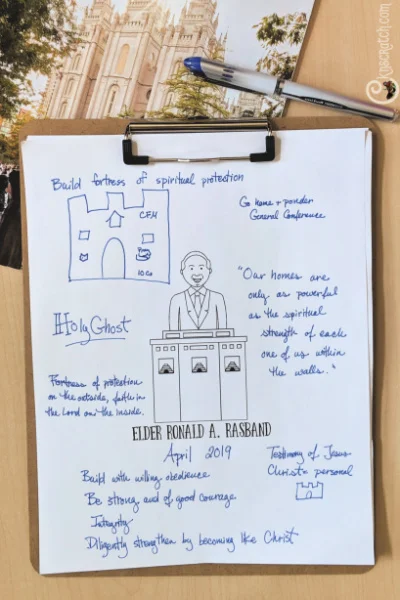 obSEUSSed
Build fortress of spiritual protection
C.F.M
10 Co
Go home & ponder
General Conference
"Our homes are
only as powerful
as the spiritual
strength of each
one of us within
the walls."
Holy Ghost
Fortress of protection
on the outside, faith in
the Lord on the inside.
ELDER RONALD A. RASBAND
April 2019
Testimony of Jesus
Christ - personal
Build with willing obedience
Be strong and of good courage
Integrity
Diligently strengthen by becoming like Christ